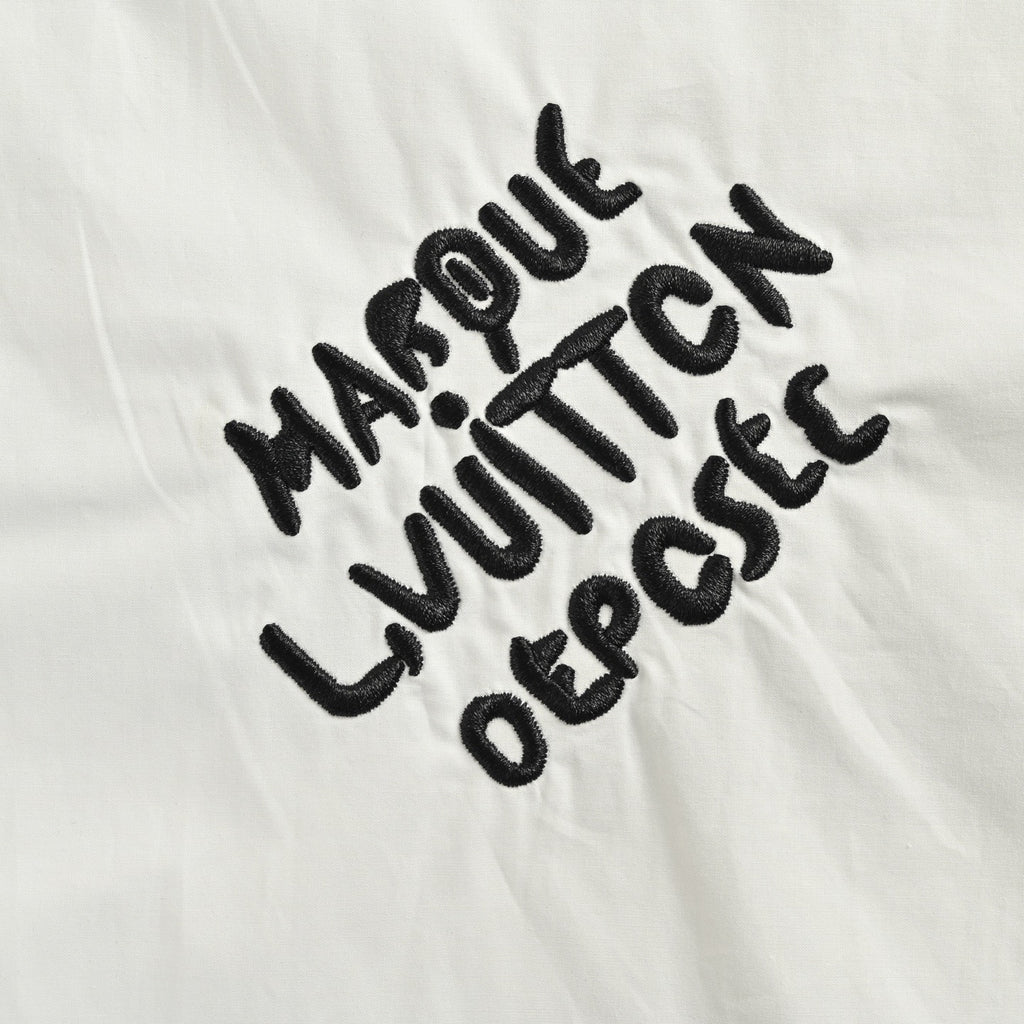 MARQUE
L.VUITTCN
OEPCSEC